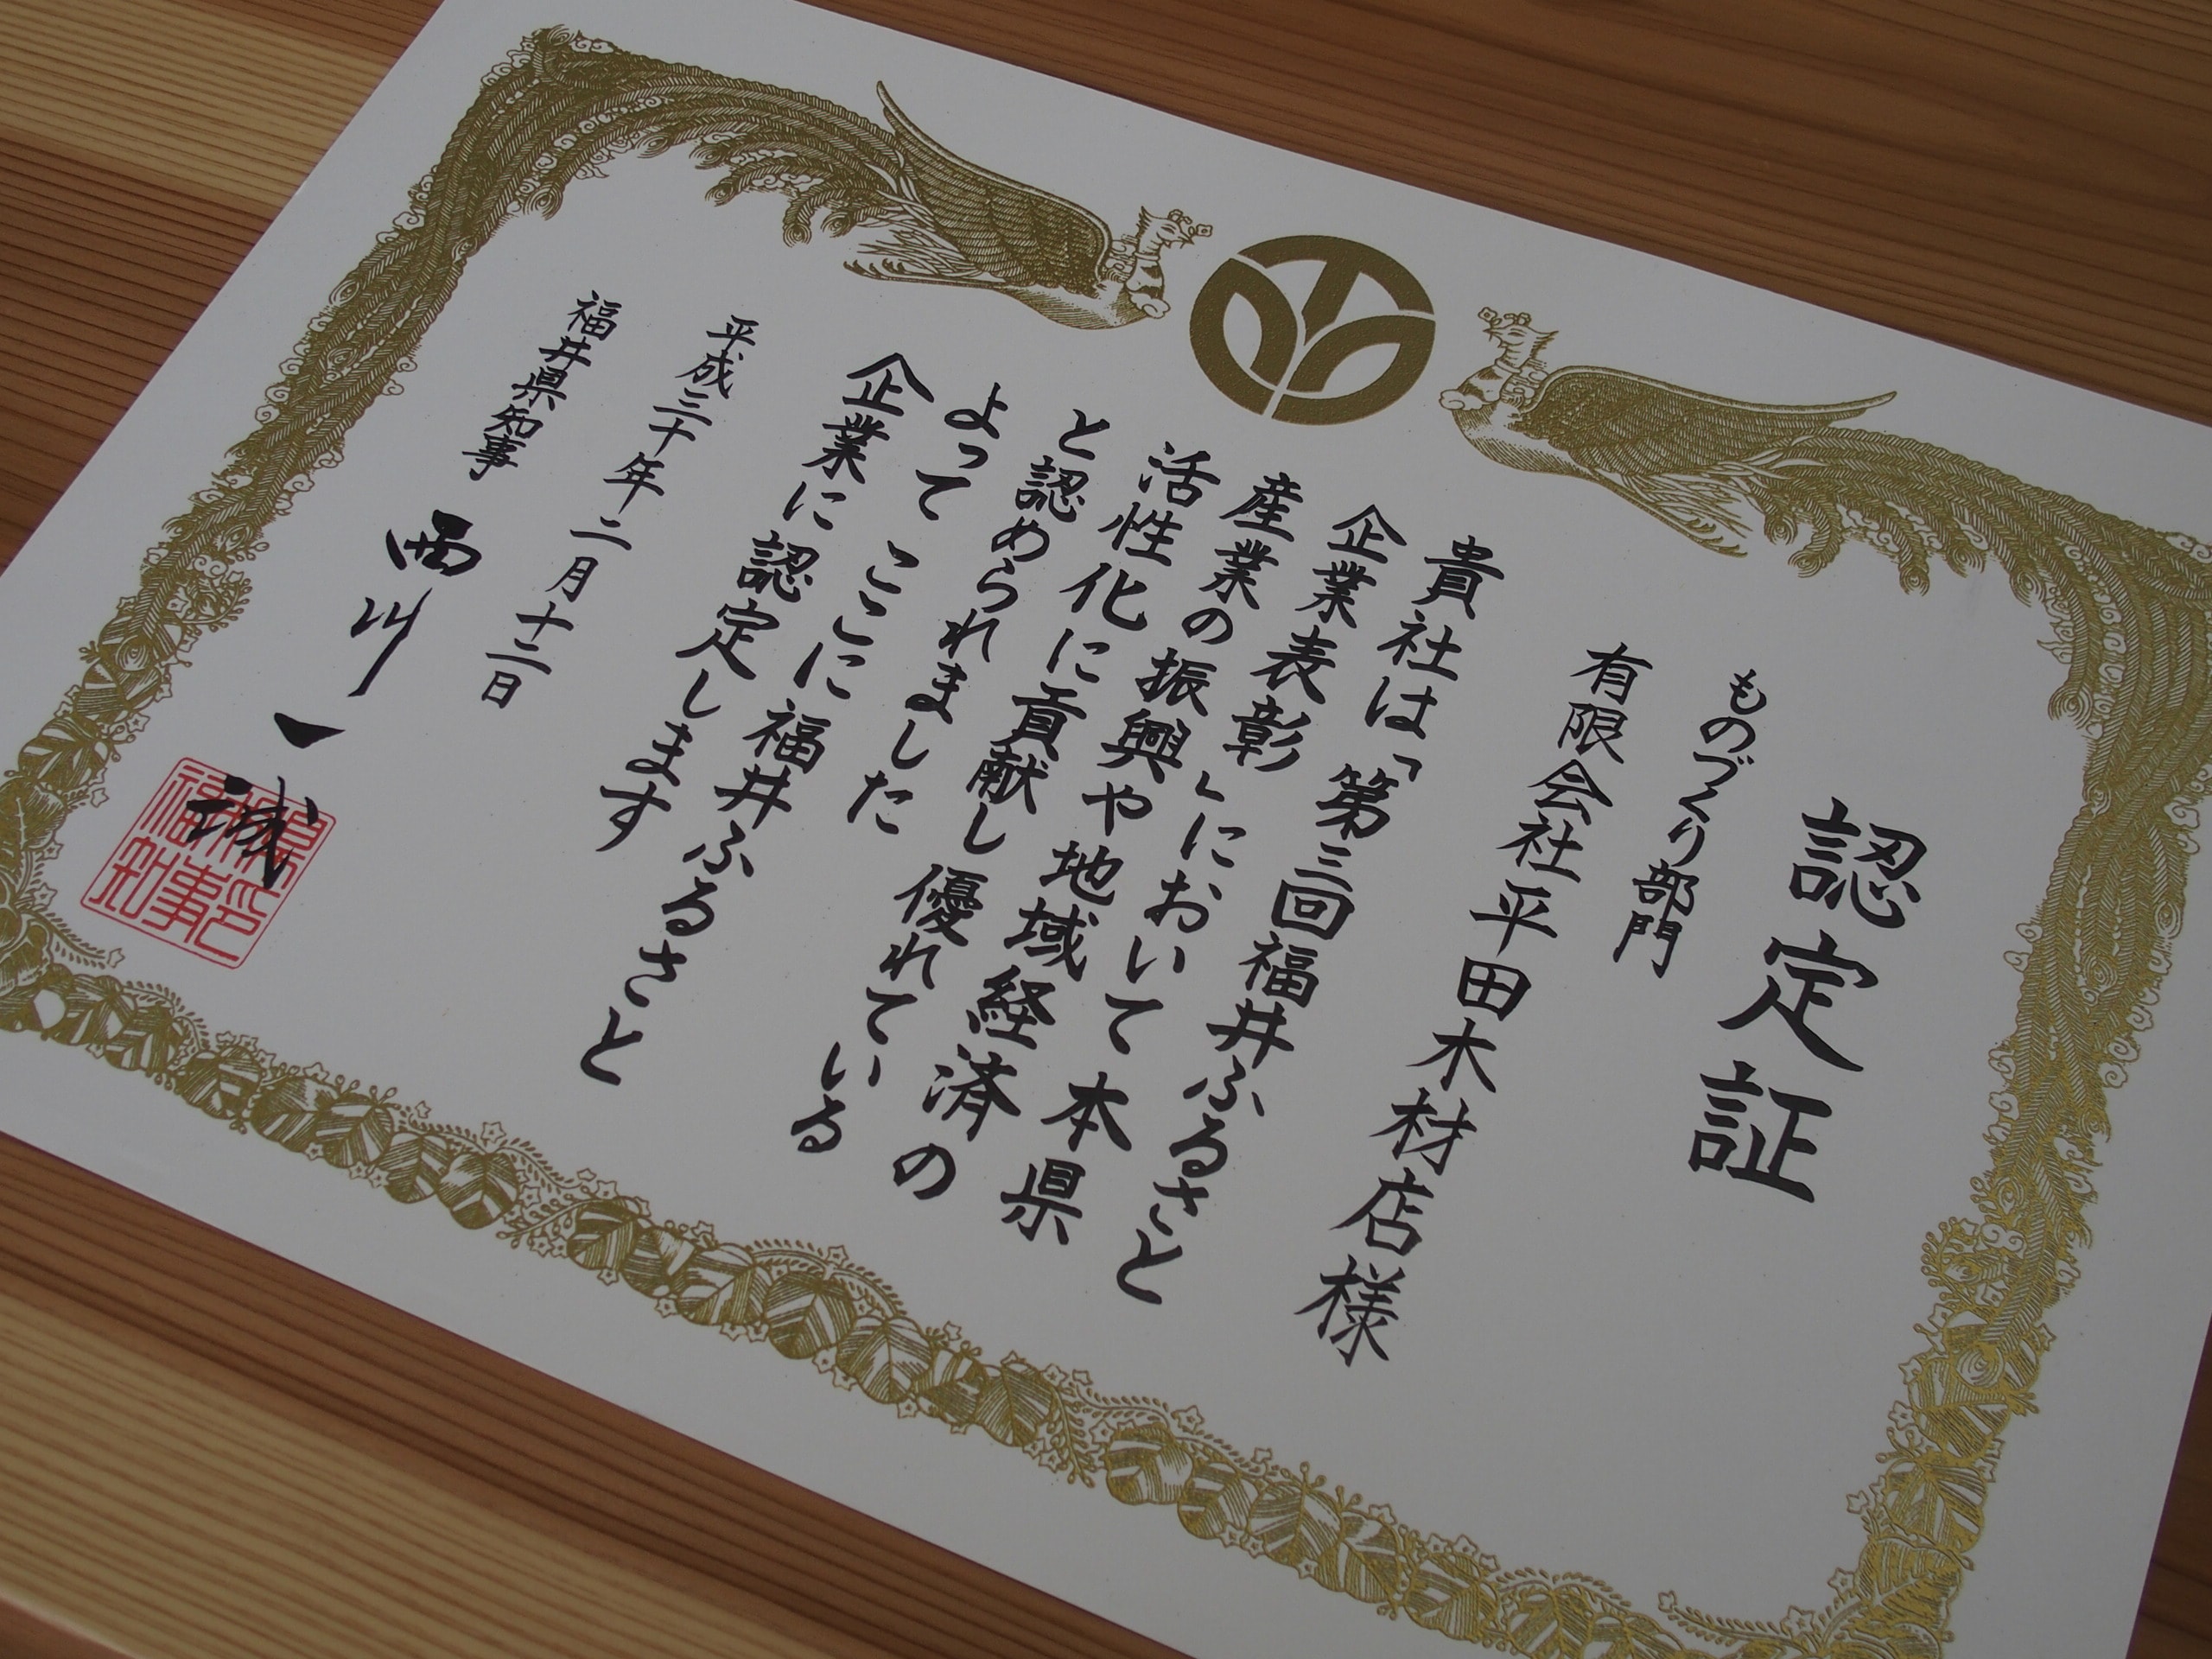 認定証
ものづくり部門
有限会社平田木材店様
貴社は「第三回福井ふるさと
企業表彰」において本県
産業の振興や地域経済の
活性化に貢献し優れている
と認められました
よってここに福井ふるさと
企業に認定します
平成三十年二月十二日
福井県知事 西川一誠
福井県知事印